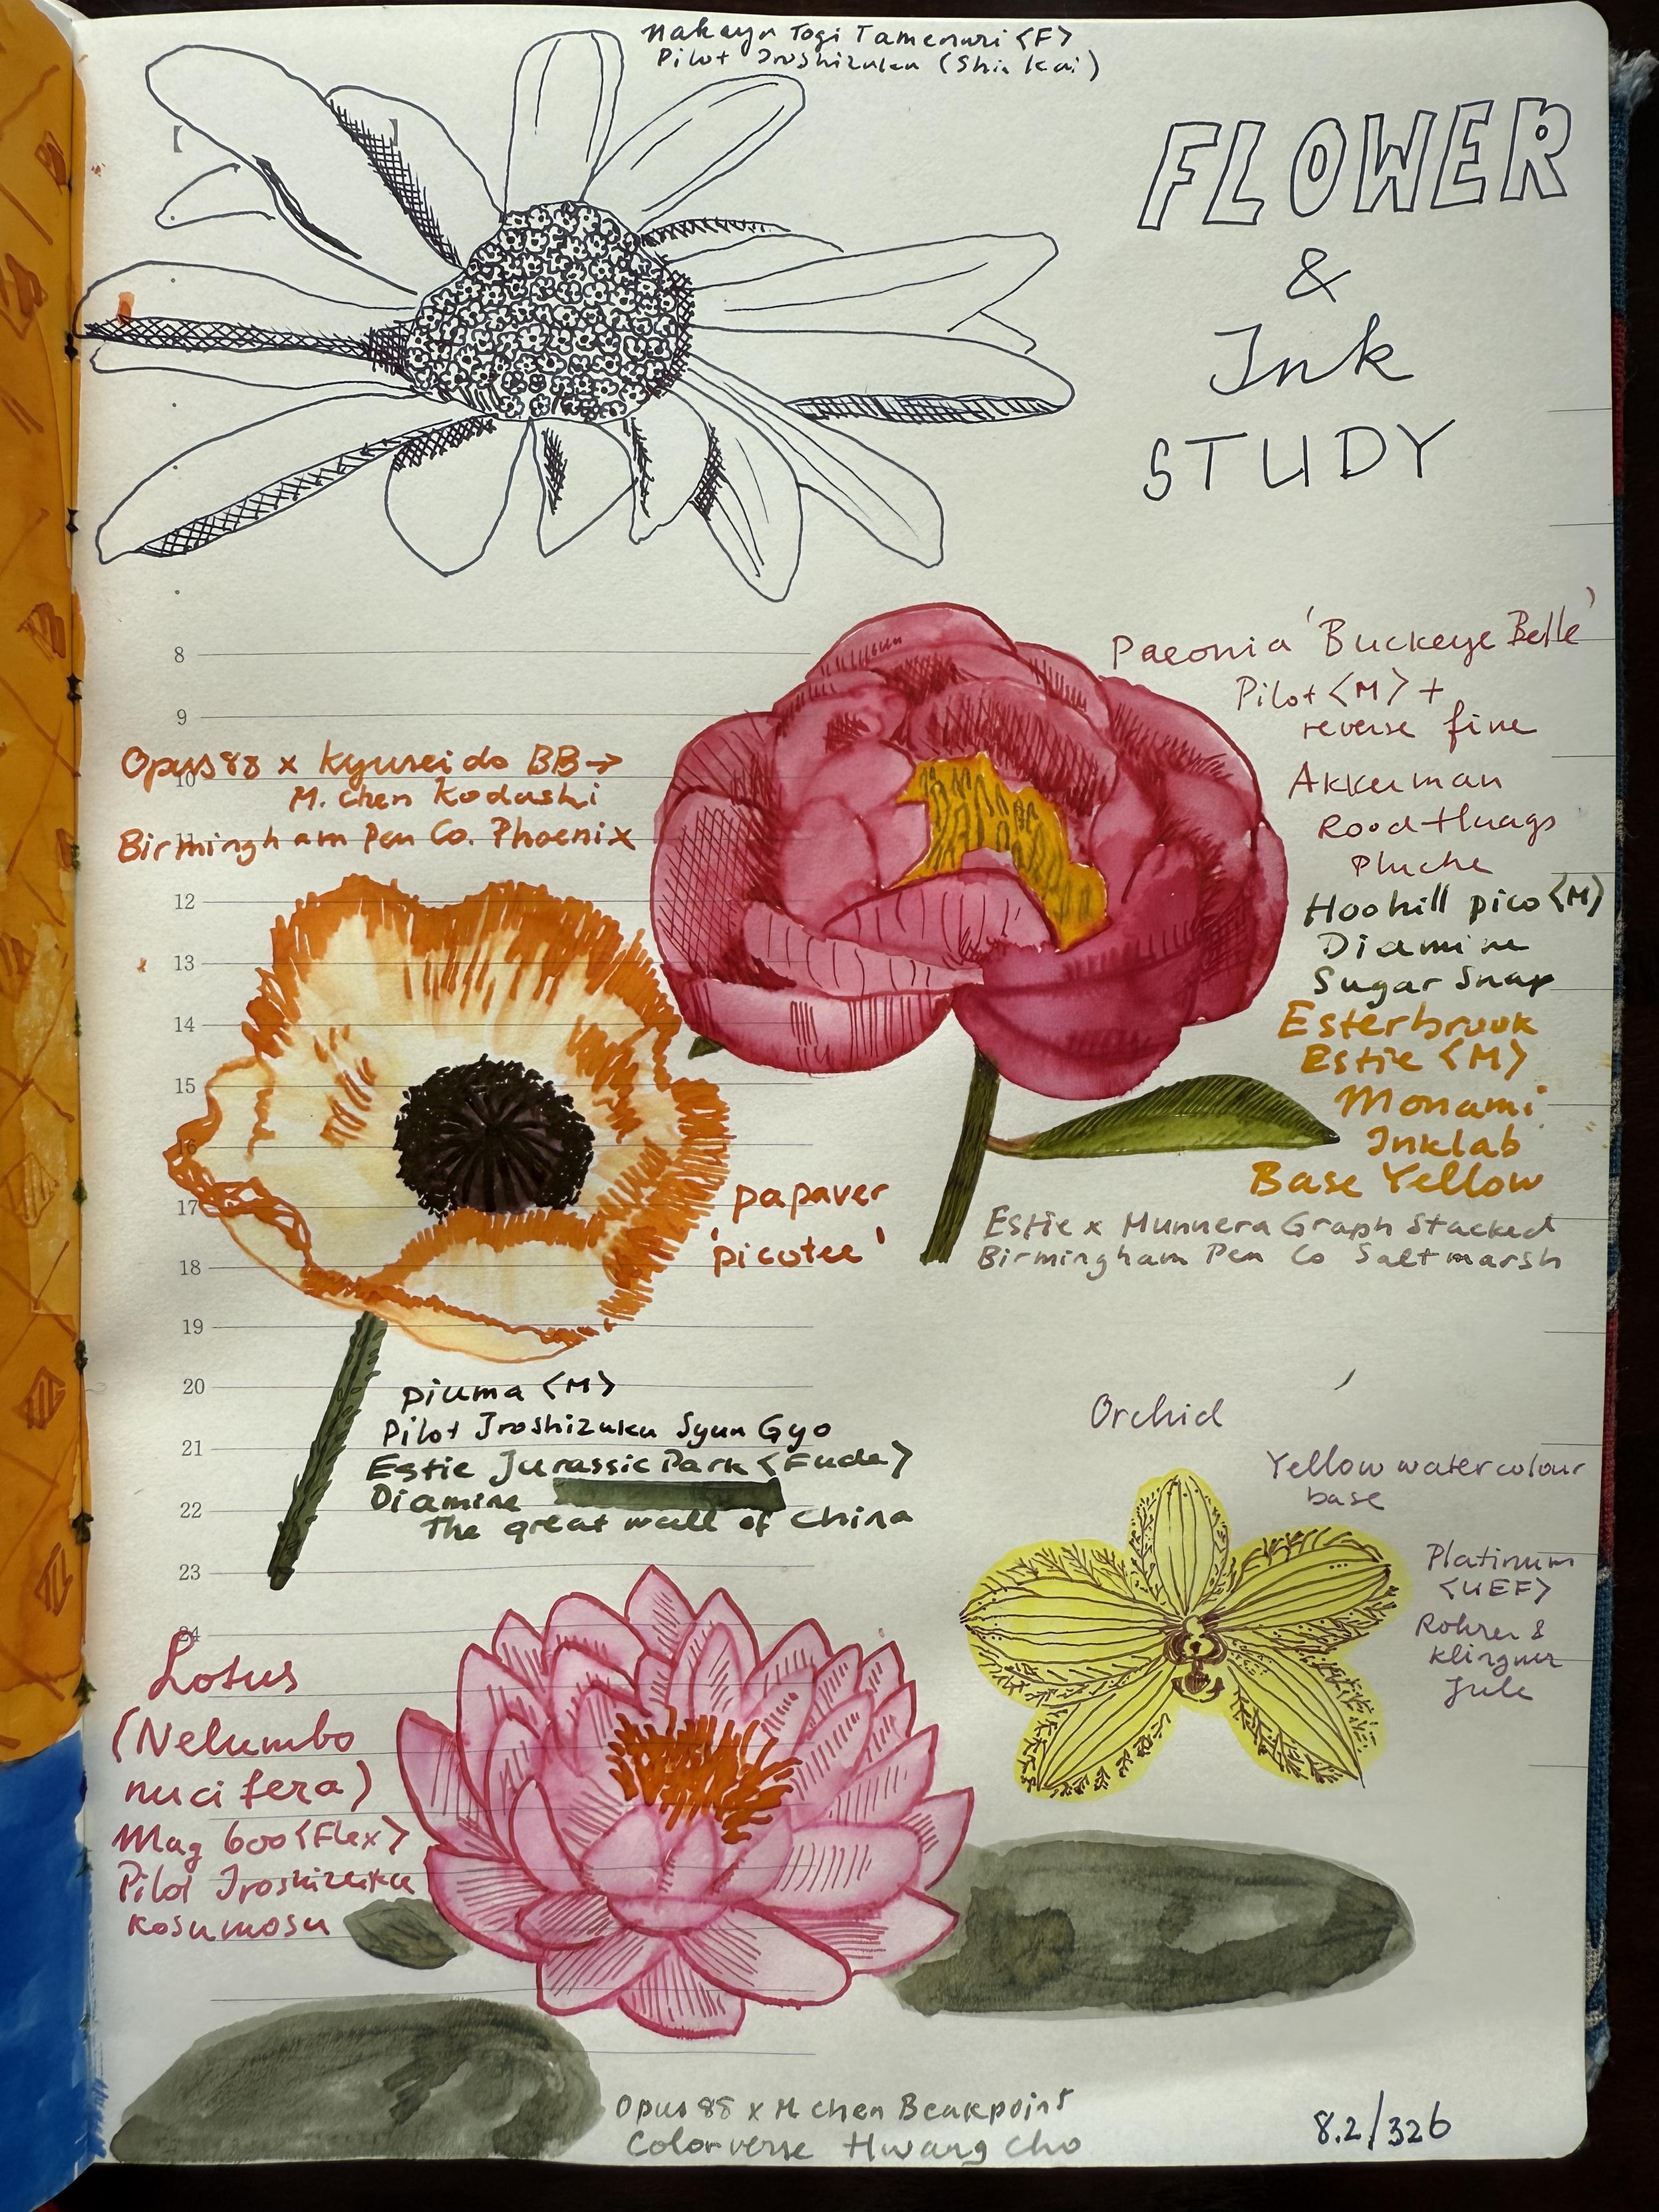 Nakaya Togi Tamenuri <F>
Pilot Iroshizuku (Shin kai)
FLOWER
&
Ink
STUDY
8
9
10
11
12
13
14
15
16
17
18
19
20
21
22
23
24
Paeonia 'Buckeye Belle'
Pilot <M> +
reverse fine
Akkerman
Rood Huags
Pluche
Hoohill pico <M>
Diamine
Sugar Snap
Esterbrook
Estie <M>
Monami
Inklab
Base Yellow
Estie x Munnera Graph Stacked
Birmingham Pen Co Saltmarsh
Opus 88 x Kyuseido BB→
M. Chen Kodashi
Birmingham Pen Co. Phoenix
papaver
'picotee'
piuma <M>
Pilot Iroshizuku Syun Gyo
Estie Jurassic Park <Fude>
Diamine
The great wall of China
Orchid
Yellow watercolour
base
Platinum
<UEF>
Rohrer &
Klingner
Jule
Lotus
(Nelumbo
nucifera)
Mag 600 <Flex>
Pilot Iroshizuku
Kosumosu
Opus 88 x M chen Beakpoint
Colorverse Hwang Cho
8.2/326